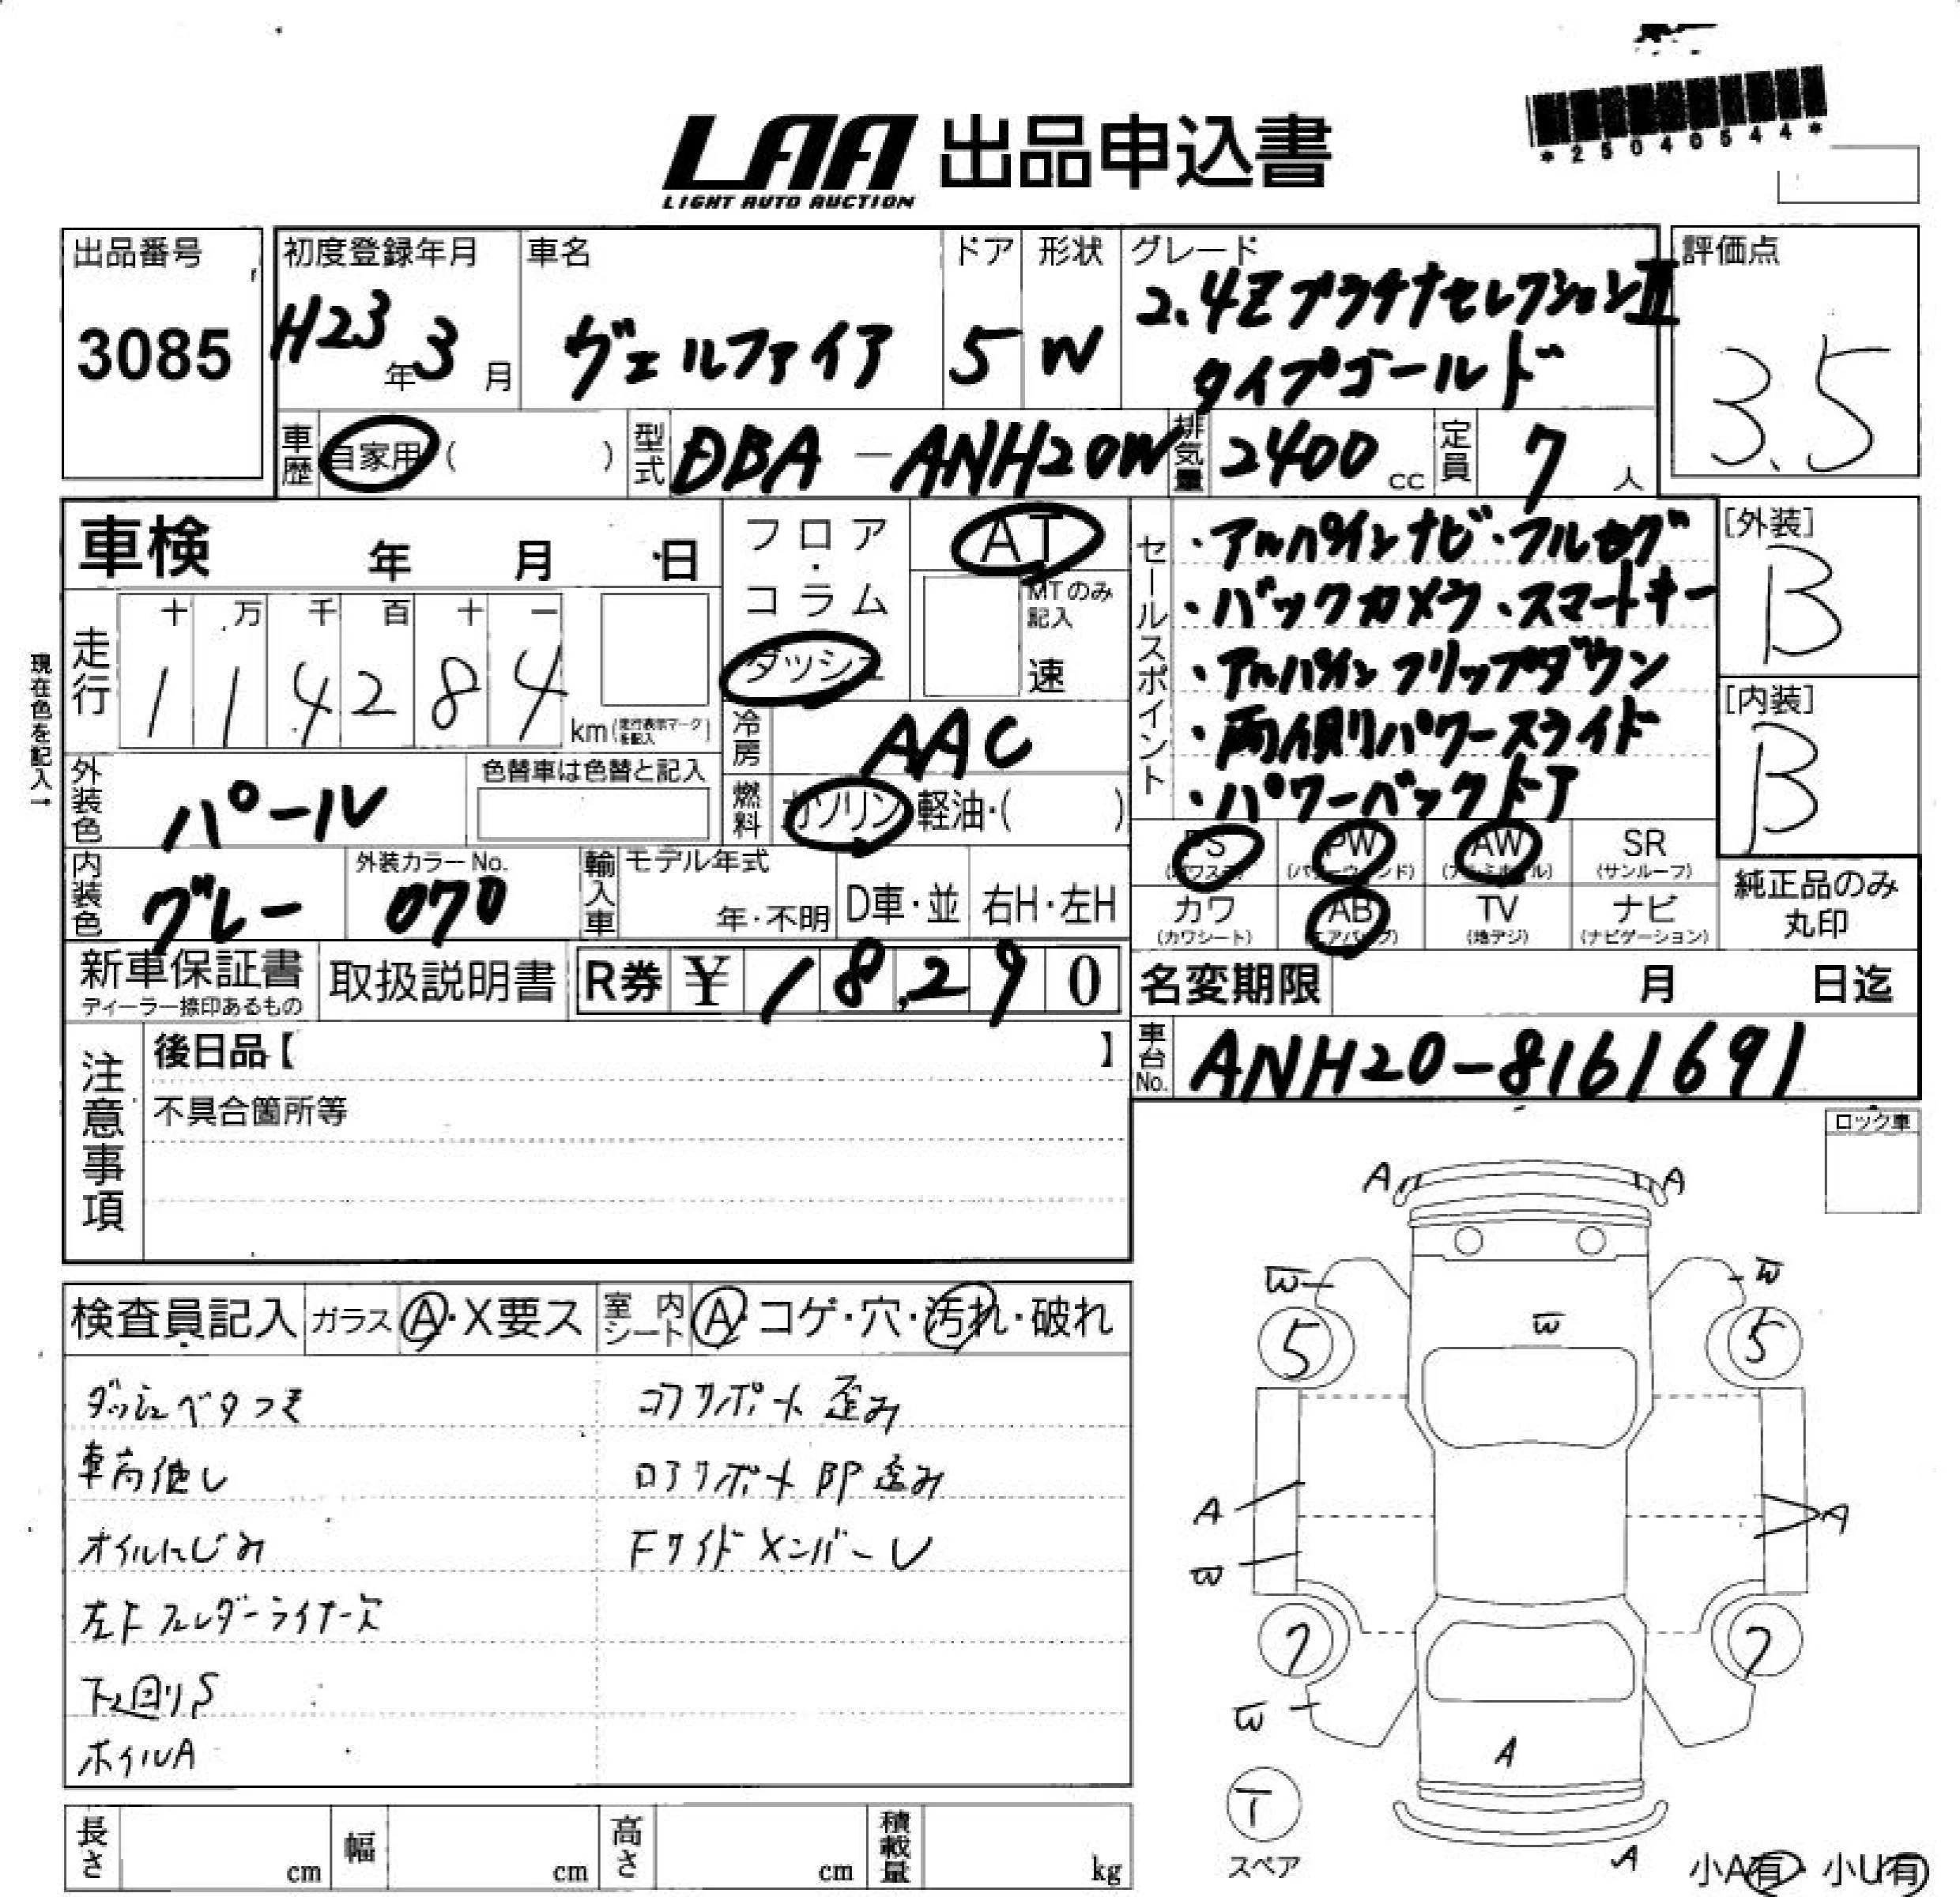 LAA 出品申込書
LIGHT AUTO AUCTION
*25040544*
出品番号
3085
初度登録年月
H23年3月
車名
ヴェルファイア
ドア
5
形状
W
グレード
2.4Z プラチナセレクションⅡ
タイプゴールド
評価点
3.5
車歴
自家用 ( )
型式
DBA-ANH20W
排気量
2400 cc
定員
7 人
車検 年 月 日
フロア・コラム
ダッシュ
AT
MTのみ記入
速
セールスポイント
・アルパインナビ・フルセグ
・バックカメラ・スマートキー
・アルパインフリップダウン
・両側パワースライド
・パワーバックドア
[外装]
B
[内装]
B
現在色を記入→
走行
十 万 千 百 十 一
1 1 4 2 8 4
km(走行表示マークを記入)
冷房
AAC
燃料
ガソリン 軽油・( )
外装色
パール
色替車は色替と記入
内装色
グレー
外装カラーNo.
070
輸入車
モデル年式
年・不明
D車・並
右H・左H
PS (パワステ)
PW (パワーウィンド)
AW (アルミホイル)
SR (サンルーフ)
カワ (カワシート)
AB (エアバッグ)
TV (地デジ)
ナビ (ナビゲーション)
純正品のみ
丸印
新車保証書
ディーラー捺印あるもの
取扱説明書
R券 ¥ 18,290
名変期限 月 日迄
車台No.
ANH20-8161691
注意事項
後日品【 】
不具合箇所等
ロック車
検査員記入
ガラス A・X要ス
室内シート A・コゲ・穴・汚れ・破れ
ダッシュベタつき
車高低し
オイルにじみ
左Fフェンダーライナー欠
下廻りS
ホイルA
コアサポート歪み
ロアサポートBP歪み
Fサイドメンバーレ
A A
W W
W
5 5
A A
W
7 7
W
A
T
スペア
A
小A有・小U有
長さ cm
幅 cm
高さ cm
積載量 kg